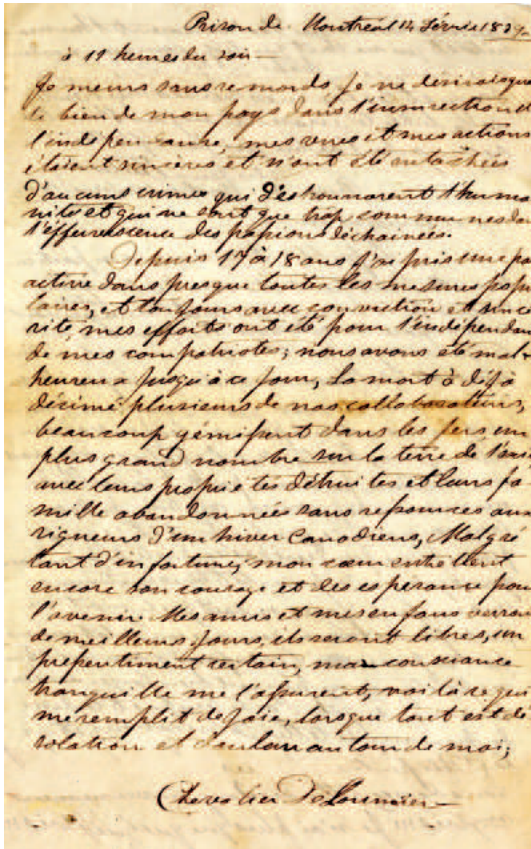 Prison de Montréal 14 février 1839
à 11 heures du soir —
Je meurs sans remords je ne désirais que
le bien de mon pays dans l'insurection et
l'indépendance, mes vues et mes actions
étaient sincères et n'ont été entachées
d'aucuns crimes qui déshonnorent l'huma
nité et qui ne sont que trop communs dans
l'effervescence des passions déchainées.
Depuis 17 à 18 ans j'ai pris une pa
active dans presque toutes les mesures popu
laires, et toujours avec conviction et sincé
rité mes efforts ont été pour l'indépendan
de mes compatriotes; nous avons été mal-
heureux jusqu'à ce jour, La mort à déjà
décimé plusieurs de nos collaborateurs,
beaucoup gémissent dans les fers un
plus grand nombre sur la terre de l'exil
avec leurs propriétés détruites et leurs fa
mille abandonnées sans ressources aux
rigueurs d'un hiver Canadiens, Malgré
tant d'infortune, mon cœur entretient
encore son courage et des espérance pour
l'avenir Mes amis et mes enfans verron
de meilleurs jours, ils seront libres, un
pressentiment certain, ma conscience
tranquille me l'assurent, voilà ce qui
me remplit de joie, lorsque tout est dé
solation et douleur autour de moi;
Chevalier De Lorimier —